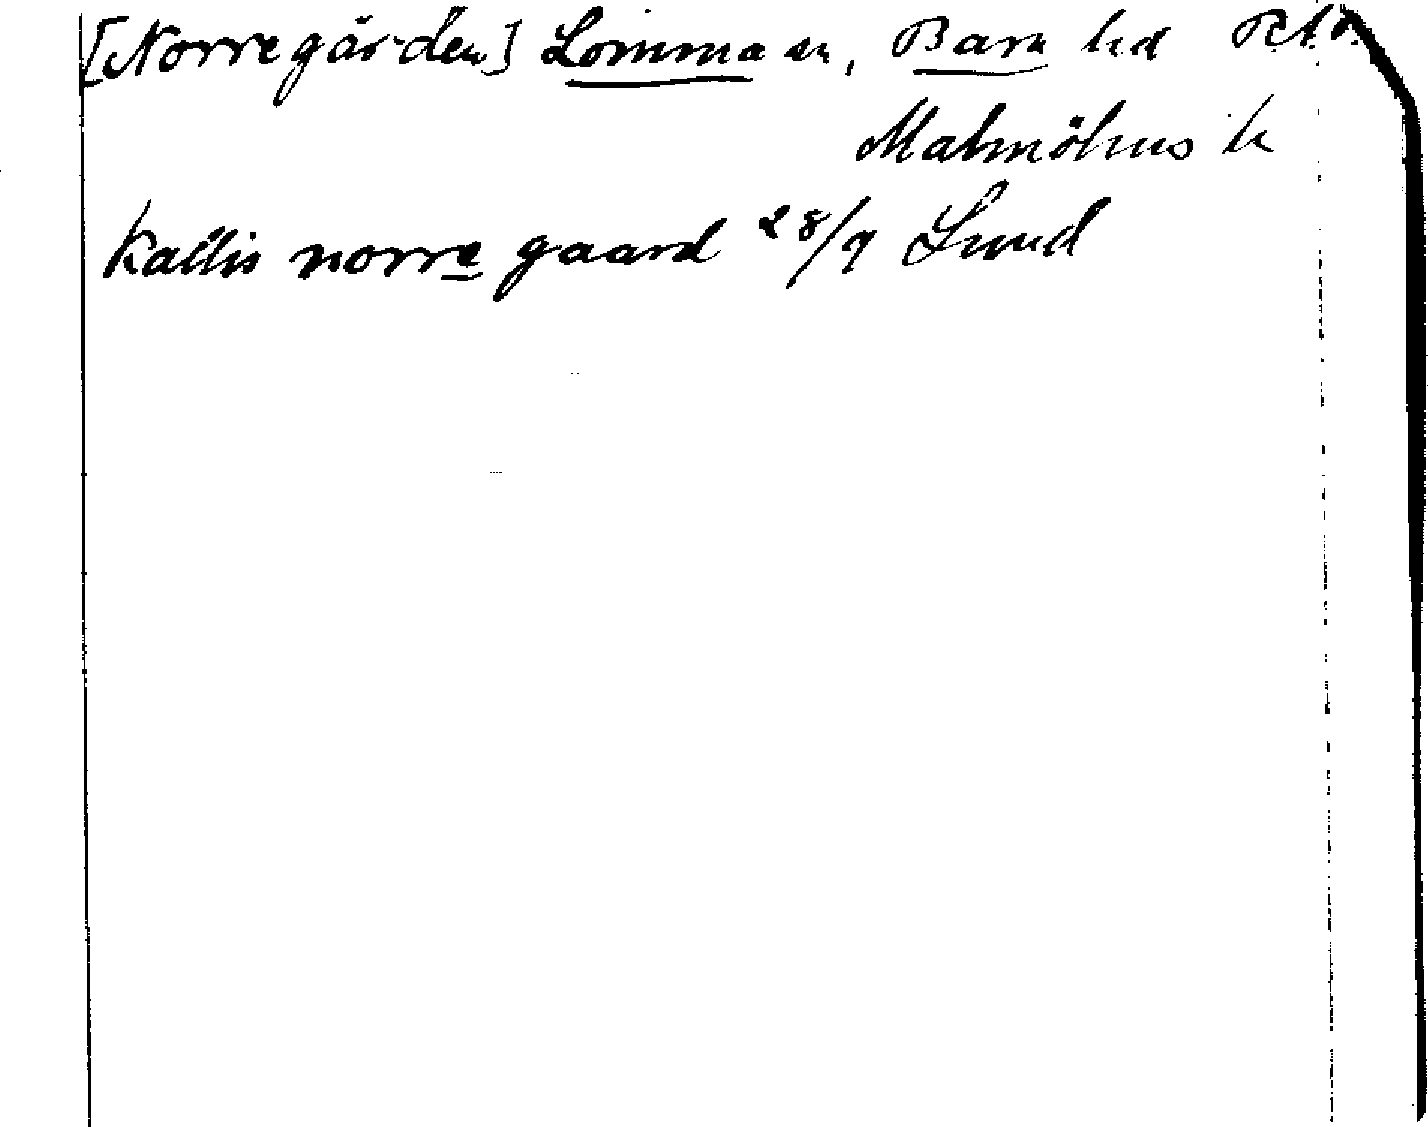 [Norregården] Lomma sn, Bara hd
Malmöhus l.
Kallis norre gaard 28/9 Lund